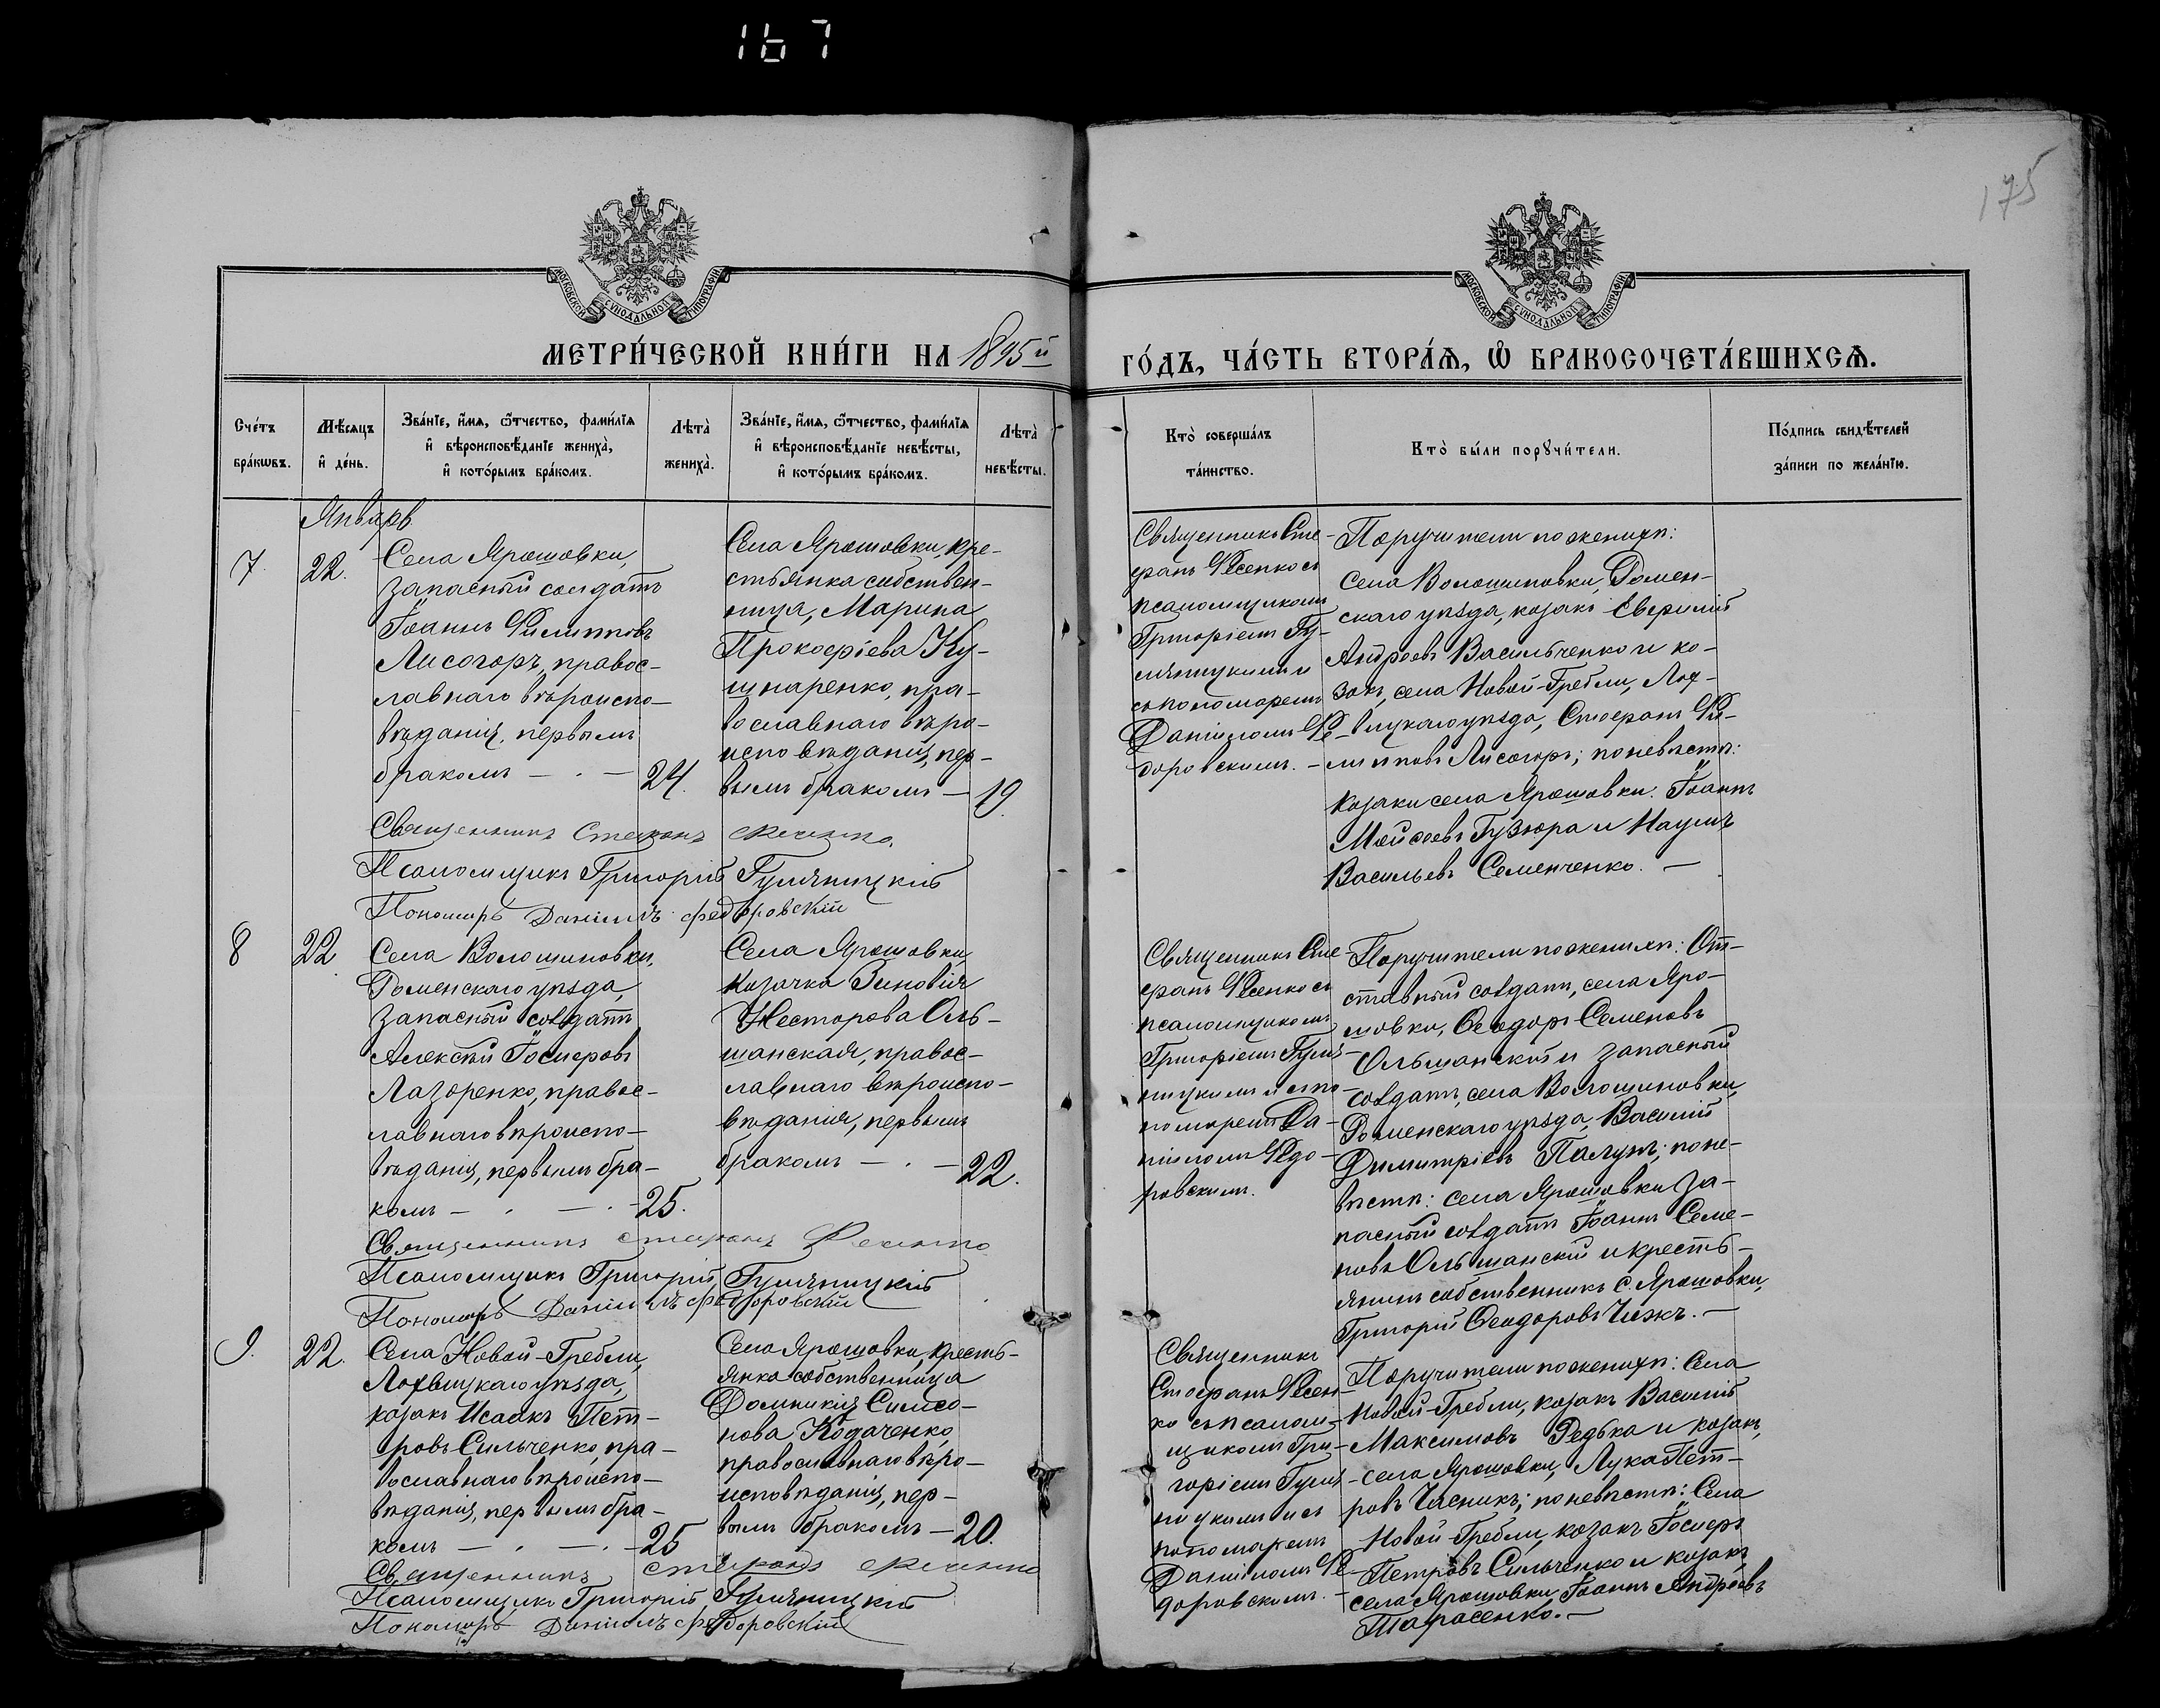 167
175
МОСКОВСКОЙ СѴНОДАЛЬНОЙ ТИПОГРАФІИ
МОСКОВСКОЙ СѴНОДАЛЬНОЙ ТИПОГРАФІИ
МЕТРИ́ЧЕСКОЙ КНИ́ГИ НА 1895й
ГО́ДЪ, ЧА́СТЬ ВТОРА́Я, Ѡ҆ БРАКОСОЧЕТА́ВШИХСЯ.
Сче́тъ бра́кѡвъ.
Мѣ́сяцъ и҆ де́нь.
Зва́нїе, и҆́мя, ѻ҆́тчество, фами́лїя
и҆ вѣроисповѣ́данїе жениха̀,
и҆ кото́рымъ бра́комъ.
Лѣта̀ жениха̀.
Зва́нїе, и҆́мя, ѻ҆́тчество, фами́лїя
и҆ вѣроисповѣ́данїе невѣ́сты,
и҆ кото́рымъ бра́комъ.
Лѣта̀ невѣ́сты.
Кто̀ соверша́лъ та́инство.
Кто̀ бы́ли порꙋчи́тели.
По́дпись свидѣ́телей за́писи по жела́нїю.
Январь
7
22.
Села Ярошовки,
запасный солдатъ
Іоаннъ Филипповъ
Лисогоръ, правос-
лавнаго вѣроиспо-
вѣданія, первымъ
бракомъ — . — 24.
Села Ярошовки, кре-
стьянка собствен-
ница, Марина
Прокофіева Ку-
щнаренко, пра-
вославнаго вѣро-
исповѣданія, пер-
вымъ бракомъ — 19.
Священникъ Сте-
фанъ Фесенко съ
псаломщикомъ
Григоріемъ Гу-
мяницкимъ и
съ пономаремъ
Даніиломъ Фе-
доровскимъ. —
Поручители по женихѣ:
села Волошиновки, Ромен-
скаго уѣзда, козакъ Евфимій
Андреевъ Васильченко и ко-
закъ, села Новой-Гребли, Лох-
вицкаго уѣзда, Стефанъ Фи-
липповъ Лисогоръ; по невѣстѣ:
козаки села Ярошовки: Іоаннъ
Моисеевъ Гузюра и Наумъ
Васильевъ Семенченко. —
Священникъ Стефанъ Фесенко
Псаломщикъ Григорій Гумяницкій
Пономарь Даніилъ Федоровскій
8
22
Села Волошиновки,
Роменскаго уѣзда,
запасный солдатъ
Алексѣй Іосифовъ
Лазоренко, правос-
лавнаго вѣроиспо-
вѣданія, первымъ бра-
комъ — . — . — 25.
Села Ярошовки
козачка Зиновія
Несторова Оль-
шанская, правос-
лавнаго вѣроиспо-
вѣданія, первымъ
бракомъ — . — 22.
Священникъ Сте-
фанъ Фесенко съ
псаломщикомъ
Григоріемъ Гумя-
ницкимъ и съ по-
номаремъ Да-
ніиломъ Федо-
ровскимъ.
Поручители по женихѣ: От-
ставный солдатъ, села Яро-
шовки, Ѳеодоръ Семеновъ
Ольшанскій и запасный
солдатъ, села Волошиновки,
Роменскаго уѣзда, Василій
Димитріевъ Палугъ; по не-
вѣстѣ: села Ярошовки за-
пасный солдатъ Іоаннъ Семе-
новъ Ольшанскій и кресть-
янинъ собственникъ с. Ярошовки,
Григорій Ѳеодоровъ Чижъ. —
Священникъ Стефанъ Фесенко
Псаломщикъ Григорій Гумяницкій
Пономарь Даніилъ Федоровскій
9.
22.
Села Новой-Гребли,
Лохвицкаго уѣзда,
козакъ Исаакъ Пет-
ровъ Сильченко, пра-
вославнаго вѣроиспо-
вѣданія, первымъ бра-
комъ — . — . — 25
Села Ярошовки, кресть-
янка собственница
Домникія Симео-
нова Кодаченко,
православнаго вѣро-
исповѣданія, пер-
вымъ бракомъ — 20.
Священникъ
Стефанъ Фесен-
ко съ псалом-
щикомъ Гри-
горіемъ Гумя-
ницкимъ и съ
пономаремъ
Даніиломъ Фе-
доровскимъ. —
Поручители по женихѣ: Села
Новой-Гребли, козакъ Василій
Максимовъ Редька и козакъ,
села Ярошовки, Лука Пет-
ровъ Чясникъ; по невѣстѣ: Села
Новой-Гребли, козакъ Іосифъ
Петровъ Сильченко и козакъ
села Ярошовки Іоаннъ Андреевъ
Тарасенко. —
Священникъ Стефанъ Фесенко
Псаломщикъ Григорій Гумяницкій
Пономарь Даніилъ Федоровскій